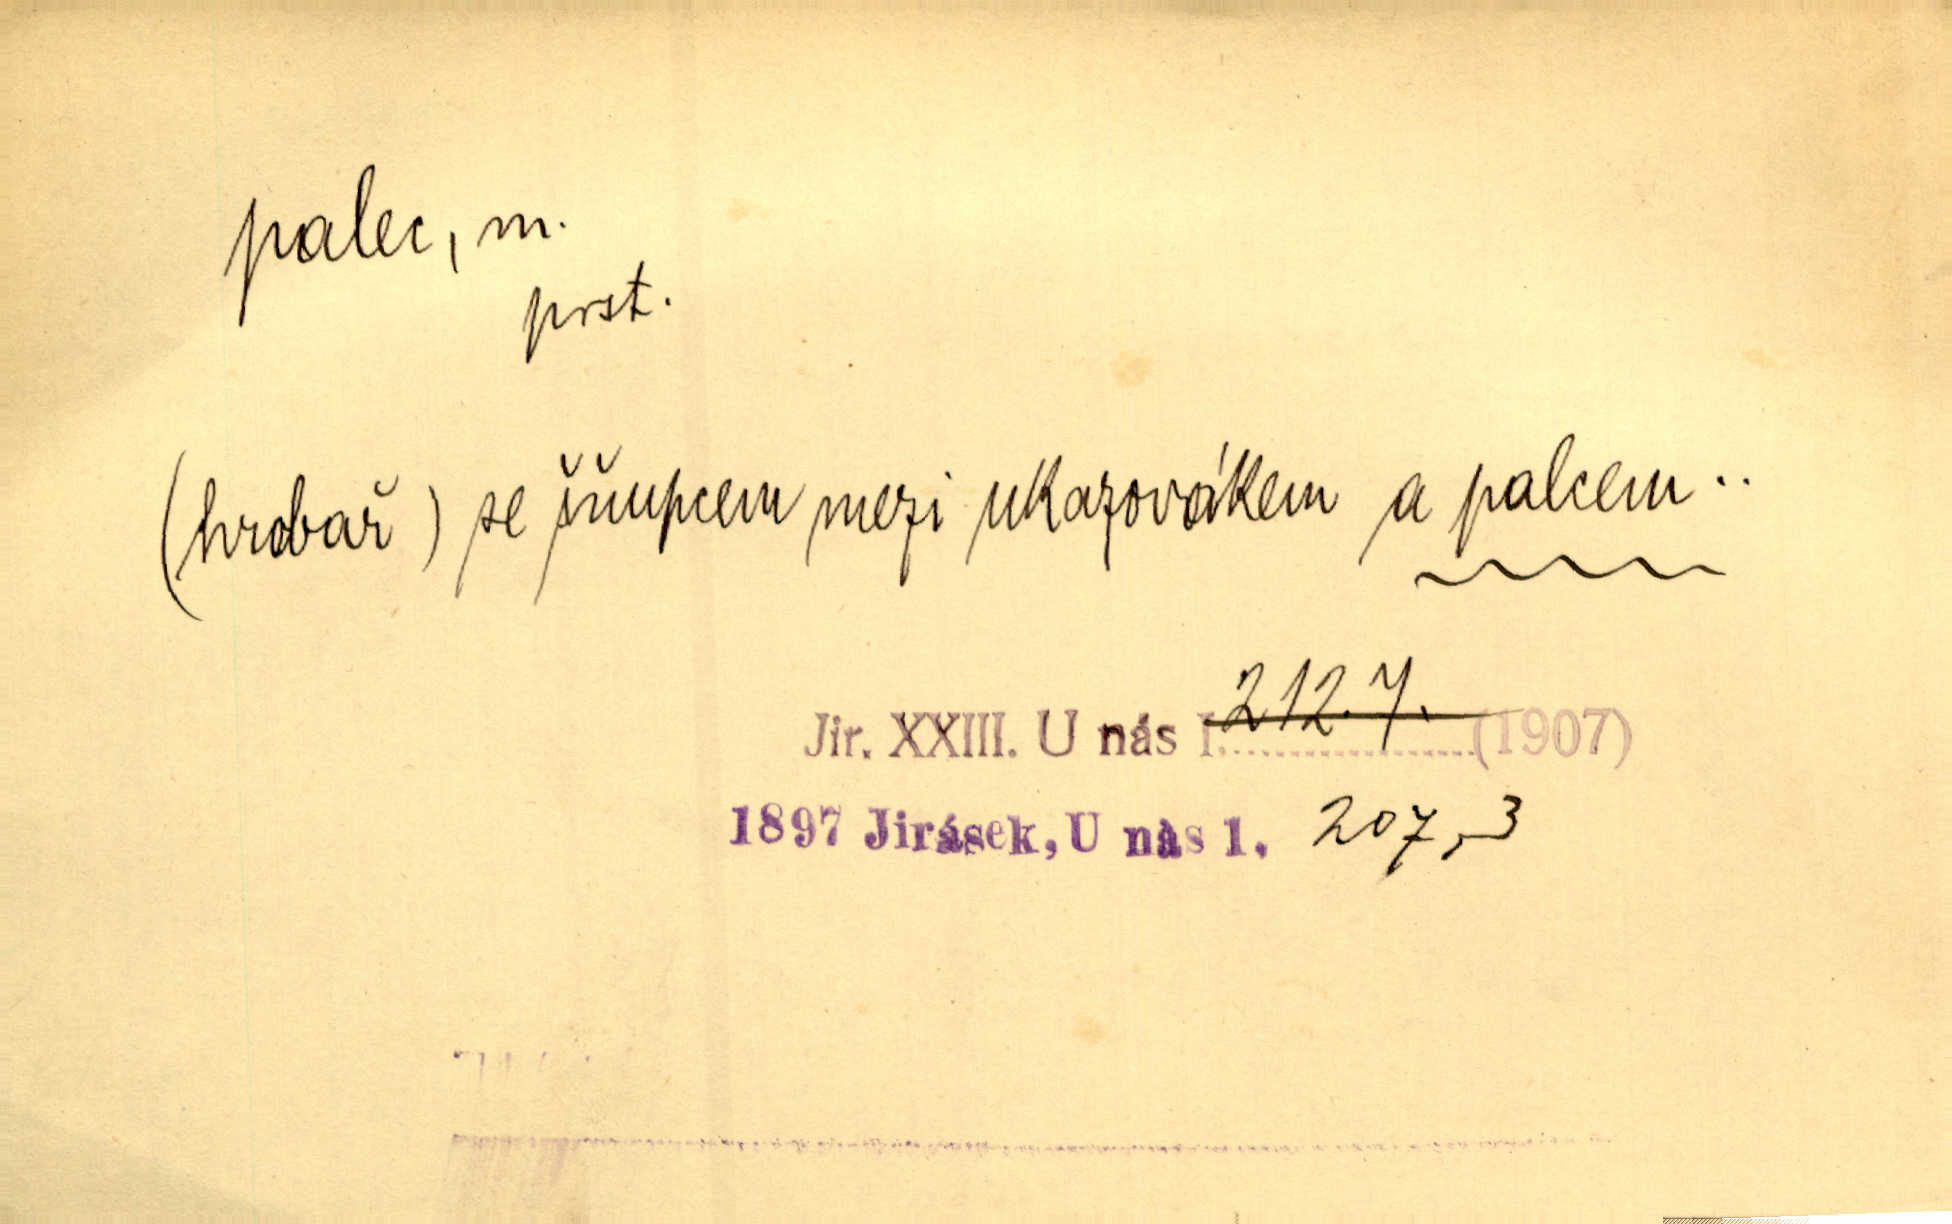 palec, m.
prst.
(hrobař) se šňupcem mezi ukazovákem a palcem..
Jir. XXIII. U nás I. 212.7. (1907)
1897 Jirásek, U nás 1. 207,3